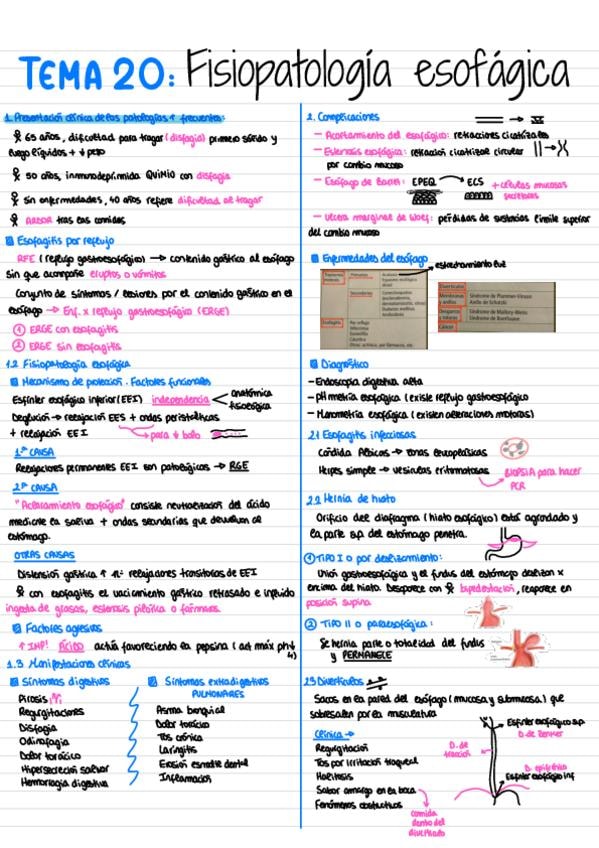 TEMA 20: Fisiopatología esofágica
1. Presentación clínica de las patologías ↑ frecuentes:
65 años, dificultad para tragar (disfagia) primero sólido y
luego líquidos + ↓ peso
50 años, inmunodeprimida QUIMIO con disfagia
Sin enfermedades, 40 años refiere dificultad al tragar
ARDOR tras las comidas
Esofagitis por reflujo
RFE (reflujo gastroesofágico) → contenido gástrico al esófago
sin que acompañe eruptos o vómitos
Conjunto de síntomas / lesiones por el contenido gástrico en el
esófago → Enf. x reflujo gastroesofágico (ERGE)
① ERGE con esofagitis
② ERGE sin esofagitis
1.2 Fisiopatología esofágica
Mecanismo de protección. Factores funcionales
Esfínter esofágico inferior (EEI) independencia anatómica
fisiológica
Deglución → relajación EES + ondas peristálticas
+ relajación EEI para ↓ bolo
1ª CAUSA
Relajaciones permanentes EEI son patológicas → RGE
2ª CAUSA
"Aclaramiento esofágico" consiste neutralización del ácido
mediante la saliva + ondas secundarias que devuelven al
estómago.
OTRAS CAUSAS
Distensión gástrica ↑ nº relajaciones transitorias de EEI
con esofagitis el vaciamiento gástrico retrasado e influido
ingesta de grasas, estenosis pilórica o fármacos.
Factores agresivos
↑ IMP! ÁCIDO actúa favoreciendo la pepsina (act máx ph↓
4)
1.3 Manifestaciones clínicas
Síntomas digestivos
Pirosis
Regurgitaciones
Disfagia
Odinofagia
Dolor torácico
Hipersecreción salivar
Hemorragia digestiva
Síntomas extradigestivos
PULMONARES
Asma bronquial
Dolor torácico
Tos crónica
Laringitis
Erosión esmalte dental
Inflamación
2. Complicaciones
- Acortamiento del esofágico: retracciones cicatrizales
- Estenosis esofágica: retracción cicatrizal circular
por cambio mucoso
- Esófago de Barret: EPEQ → ECS + células mucosas
secretoras
- Ulcera marginal de Wolf: pérdidas de sustancias límite superior
del cambio mucoso
Enfermedades del esófago
estrechamiento luz
Trastornos motores
Primarios
Acalasia
Espasmo esofágico difuso
Secundarios
Esofagitis
Por reflujo
Infecciosa
Cáustica
Divertículos
Membranas y anillos
Síndrome de Plummer-Vinson
Anillo de Schatzki
Desgarros y roturas
Síndrome de Mallory-Weiss
Síndrome de Boerhaave
Cáncer
Diagnóstico
- Endoscopia digestiva alta
- pH metría esofágica (existe reflujo gastroesofágico)
- Manometria esofágica (existen alteraciones motoras)
2.1 Esofagitis infecciosas
Cándida Albicans → zonas leucoplásicas
Herpes simple → vesículas eritematosas
BIOPSIA para hacer
PCR
2.2 Hernia de hiato
Orificio del diafragma (hiato esofágico) está agrandado y
la parte sup. del estómago penetra.
① TIPO I o por deslizamiento:
Unión gastroesofágica y el fundus del estómago deslizan x
encima del hiato. Desaparece con bipedestación, reaparece en
posición supina
② TIPO II o paraesofágica:
Se hernia parte o totalidad del fundus
y PERMANECE
2.3 Divertículos
Sacos en la pared del esófago (mucosa y submucosa) que
sobresalen por la musculatura
Clínica →
Regurgitación
Tos por irritación traqueal
Halitosis
Sabor amargo en la boca
Fenómenos obstructivos
comida
dentro del
divertículo
Esfínter esofágico sup.
D. de Zenker
D. de
tracción
D. epifrénico
Esfínter esofágico inf